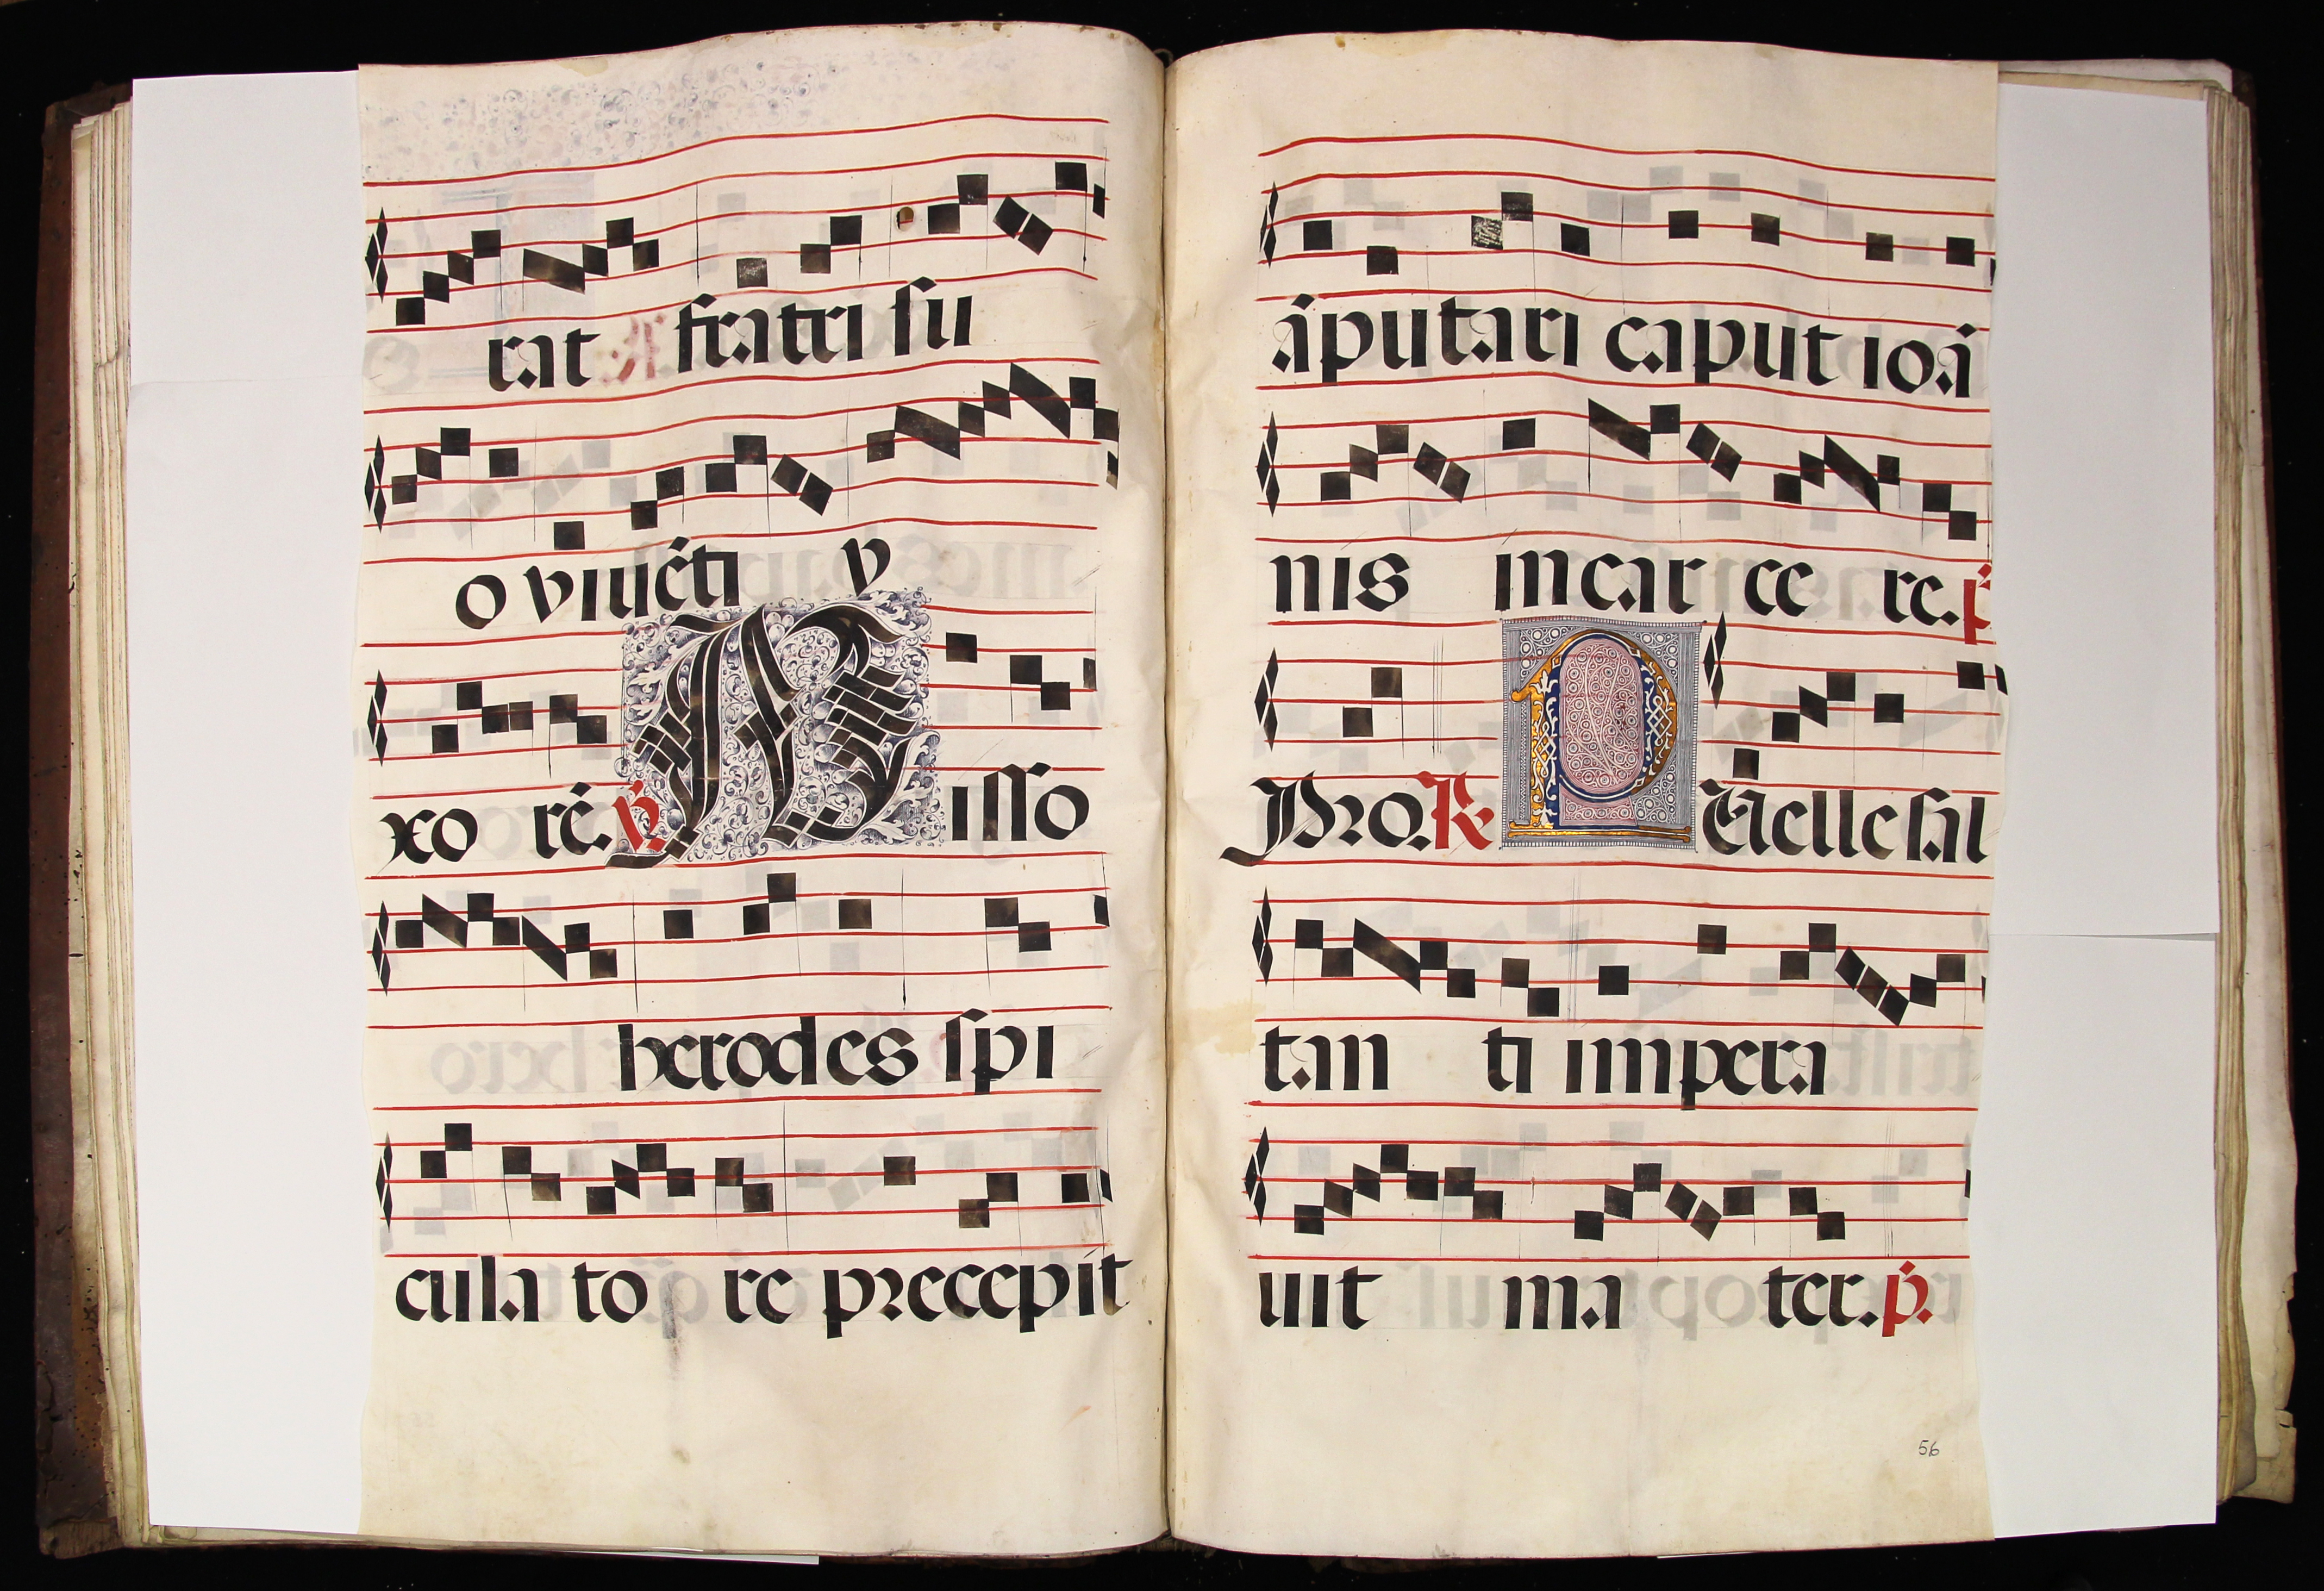 rat fratri su
o viuẽti v
xo rẽ. ℣. Misso
herodes spi
cula to re precepit
ãputari caput ioã
nis incar ce re. p̃
Pro. ℟ Puelle sal
tan ti impera
uit ma ter. p̃.
56